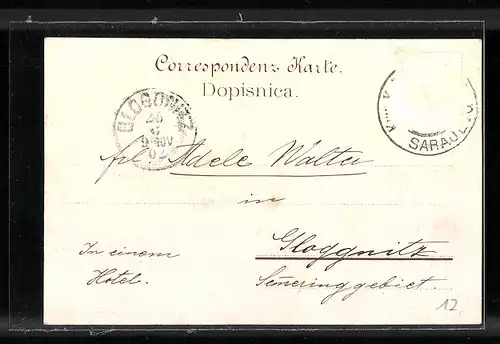 Correspondenz Karte.
Dopisnica.
GLOGGNITZ
SARAJEVO
Frl Adele Walter
in
Gloggnitz
Semeringgebiet.
In einem
Hotel.
12